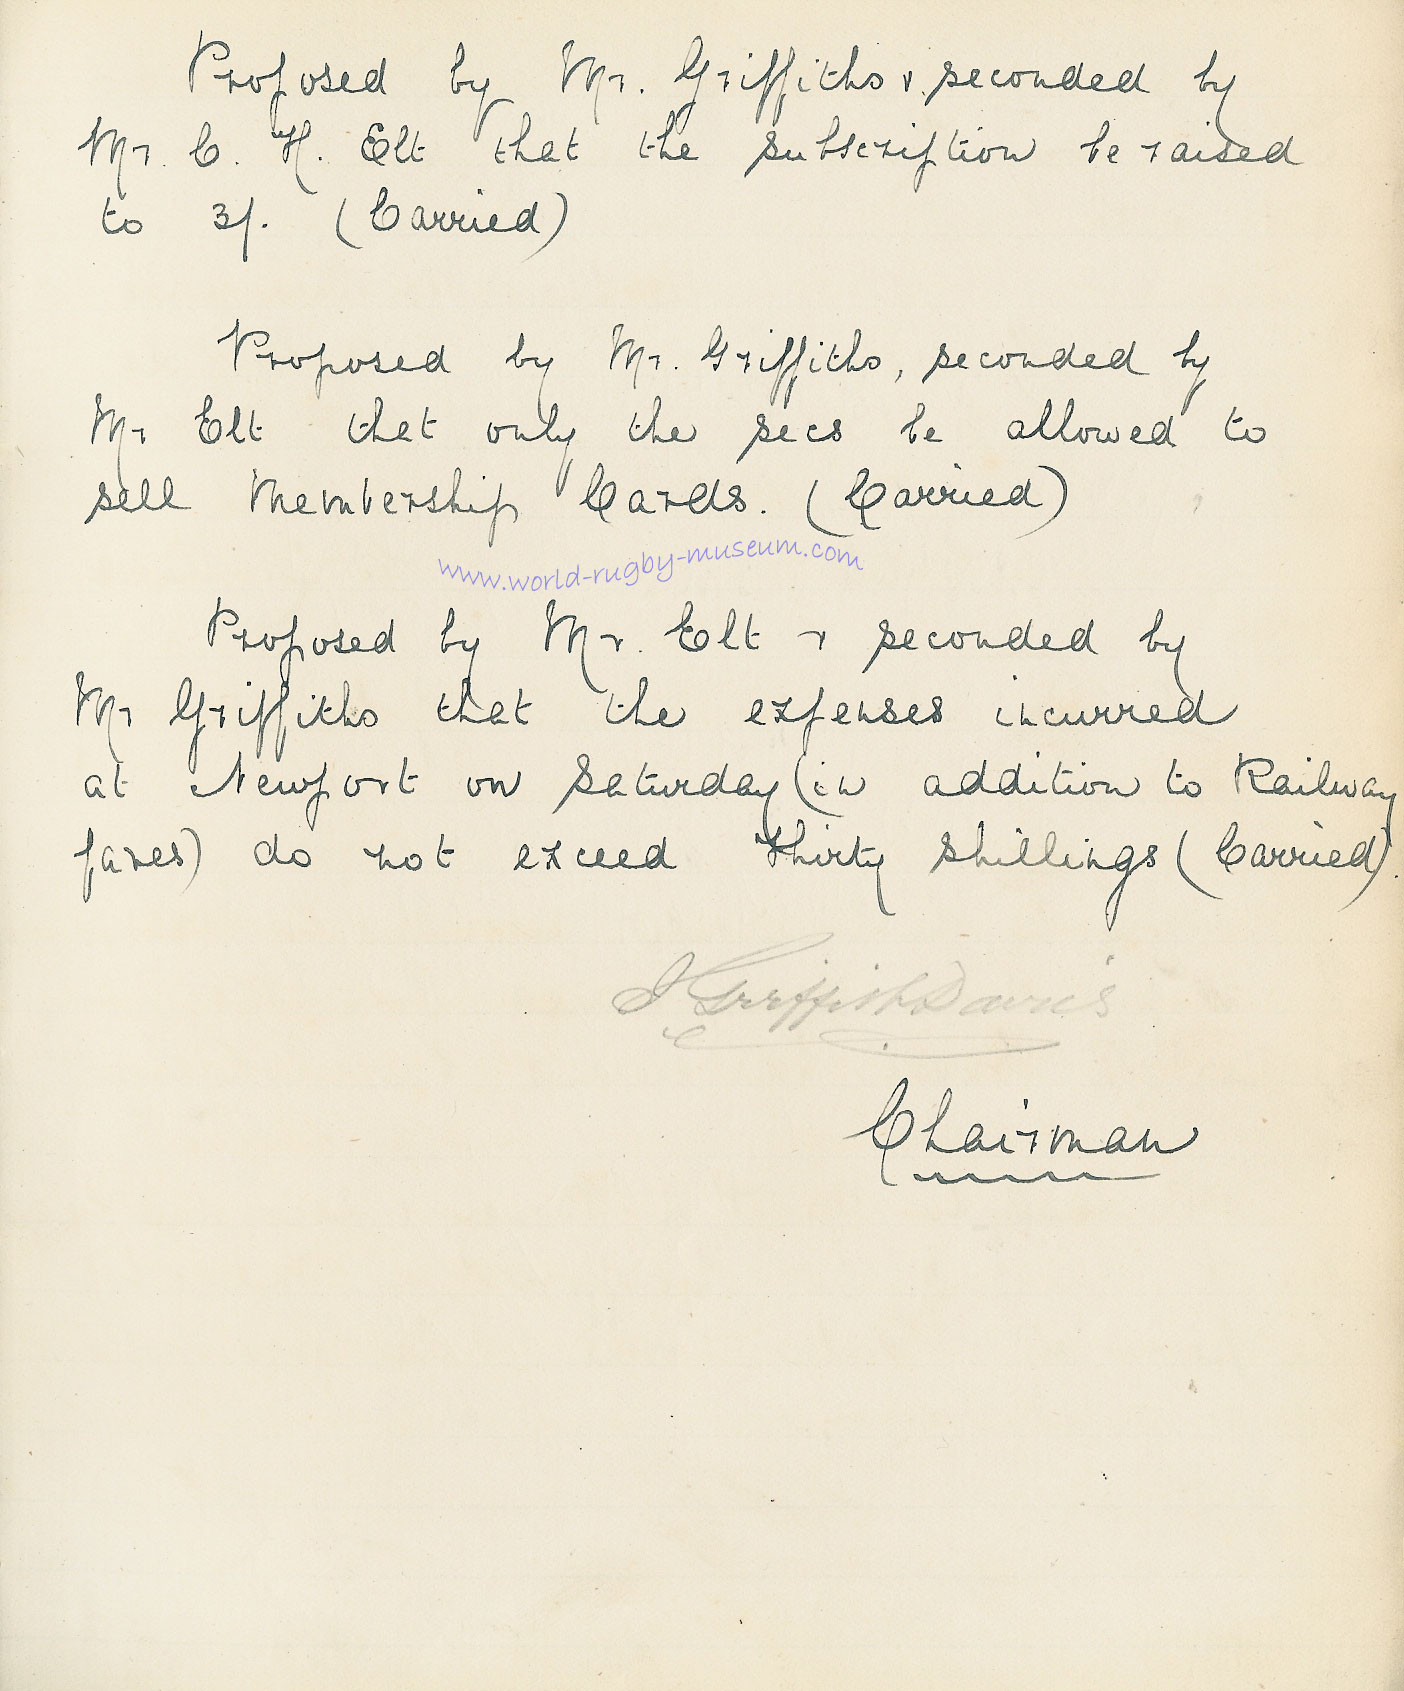 Proposed by Mr. Griffiths & seconded by
Mr. C. H. Elt that the subscription be raised
to 3/. (Carried)
Proposed by Mr. Griffiths, seconded by
Mr Elt that only the secs be allowed to
sell Membership Cards. (Carried)
www.world-rugby-museum.com
Proposed by Mr. Elt & seconded by
Mr Griffiths that the expenses incurred
at Newport on Saturday (in addition to Railway
fares) do not exceed thirty shillings (Carried).
J Griffith Davies
Chairman